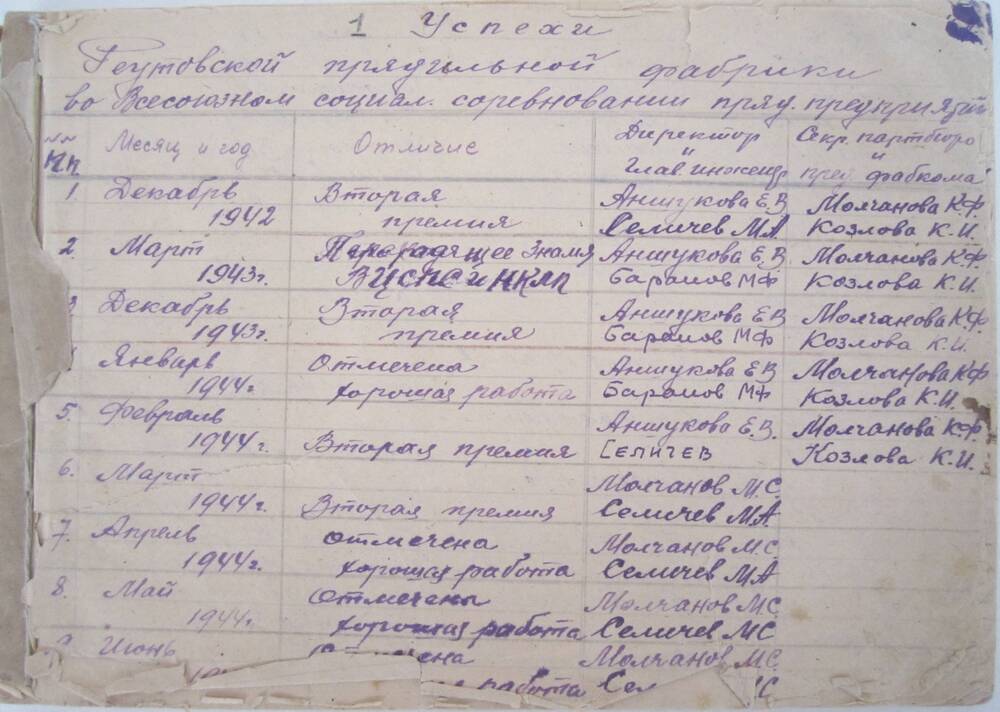 1 Успехи
Реутовской прядильной фабрики
во Всесоюзном социал. соревновании пряд. предприятий
№№ п.п. Месяц и год Отличие Директор и Глав. инженер Секр. партбюро и пред. фабкома
1. Декабрь Вторая Аншукова Е.В. Молчанова К.Ф.
1942 премия Селичев М.А. Козлова К.И.
2. Март Переходящее Знамя Аншукова Е.В. Молчанова К.Ф.
1943г. ВЦСПС и НКЛП Баранов МФ Козлова К.И.
3 Декабрь Вторая Аншукова Е.В. Молчанова К.Ф.
1943г. премия Баранов МФ Козлова К.И.
Январь Отмечена Аншукова Е.В. Молчанова К.Ф.
1944г. хорошая работа Баранов МФ Козлова К.И.
5. Февраль Аншукова Е.В. Молчанова К.Ф.
1944г. Вторая премия Селичев Козлова К.И.
6. Март Молчанов М.С.
1944г. Вторая премия Селичев М.А
7. Апрель отмечена Молчанов М.С.
1944г. хорошая работа Селичев М.А
8. Май Отмечены Молчанов М.С.
1944г. хорошая работа Селичев МС
Июнь Молчанов М.С.
работа